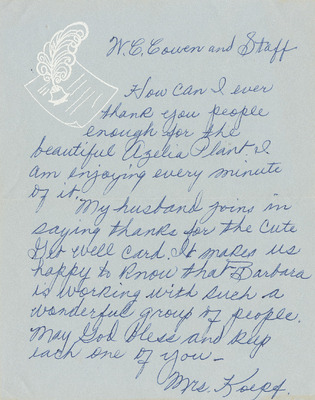 W. C. Cowen and Staff
How can I ever
thank you people
enough for the
beautiful Azelia Plant. I
am enjoying every minute
of it.
My husband joins in
saying thanks for the cute
Get Well card. It makes us
happy to know that Barbara
is working with such a
wonderful group of people.
May God bless and keep
each one of you—
Mrs. Koepf.